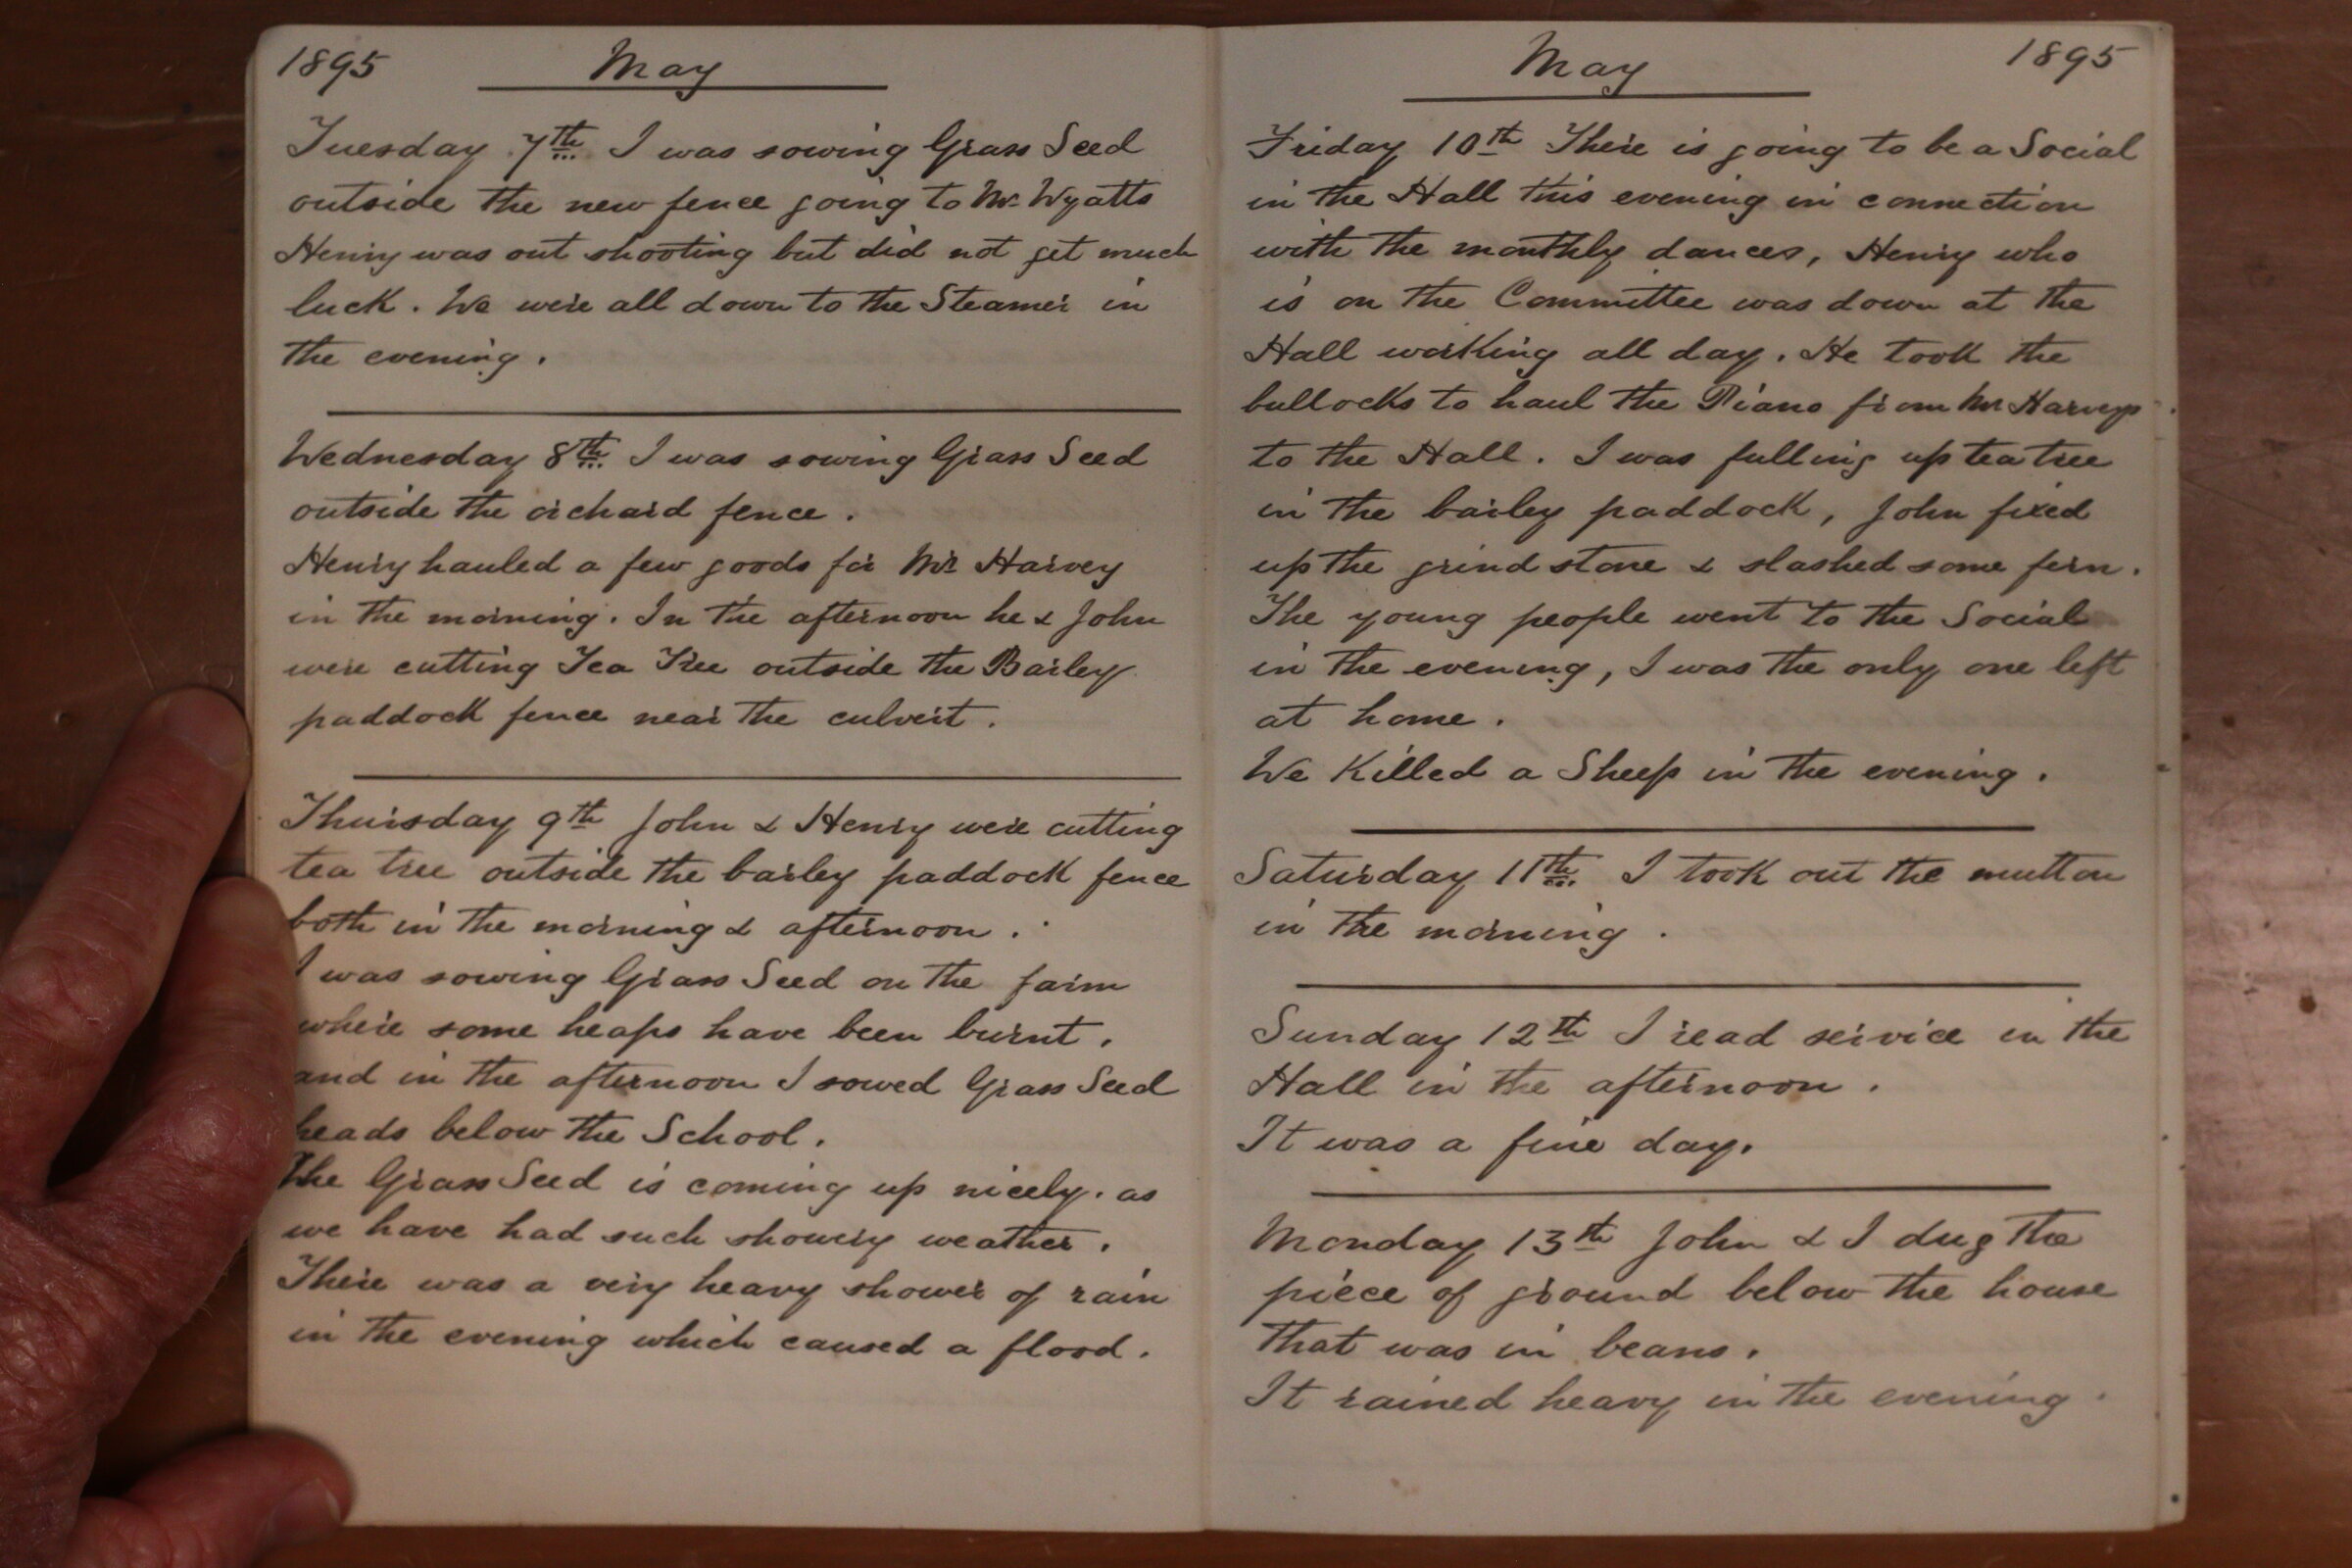 1895 May
Tuesday 7th I was sowing Grass Seed
outside the new fence going to Mr Wyatts
Henry was out shooting but did not get much
luck. We were all down to the Steamer in
the evening.
Wednesday 8th I was sowing Grass Seed
outside the orchard fence.
Henry hauled a few goods for Mr Harvey
in the morning. In the afternoon he & John
were cutting Tea Tree outside the Barley
paddock fence near the culvert.
Thursday 9th John & Henry were cutting
tea tree outside the barley paddock fence
both in the morning & afternoon.
I was sowing Grass Seed on the farm
where some heaps have been burnt.
and in the afternoon I sowed Grass Seed
heads below the School.
The Grass Seed is coming up nicely. as
we have had such showery weather.
There was a very heavy shower of rain
in the evening which caused a flood.
May 1895
Friday 10th There is going to be a Social
in the Hall this evening in connection
with the monthly dances, Henry who
is on the Committee was down at the
Hall working all day. He took the
bullocks to haul the Piano from Mr Harveys
to the Hall. I was pulling up tea tree
in the barley paddock, John fixed
up the grind stone & slashed some fern.
The young people went to the Social
in the evening, I was the only one left
at home.
We Killed a Sheep in the evening.
Saturday 11th I took out the mutton
in the morning.
Sunday 12th I read service in the
Hall in the afternoon.
It was a fine day.
Monday 13th John & I dug the
piece of ground below the house
that was in beans.
It rained heavy in the evening.